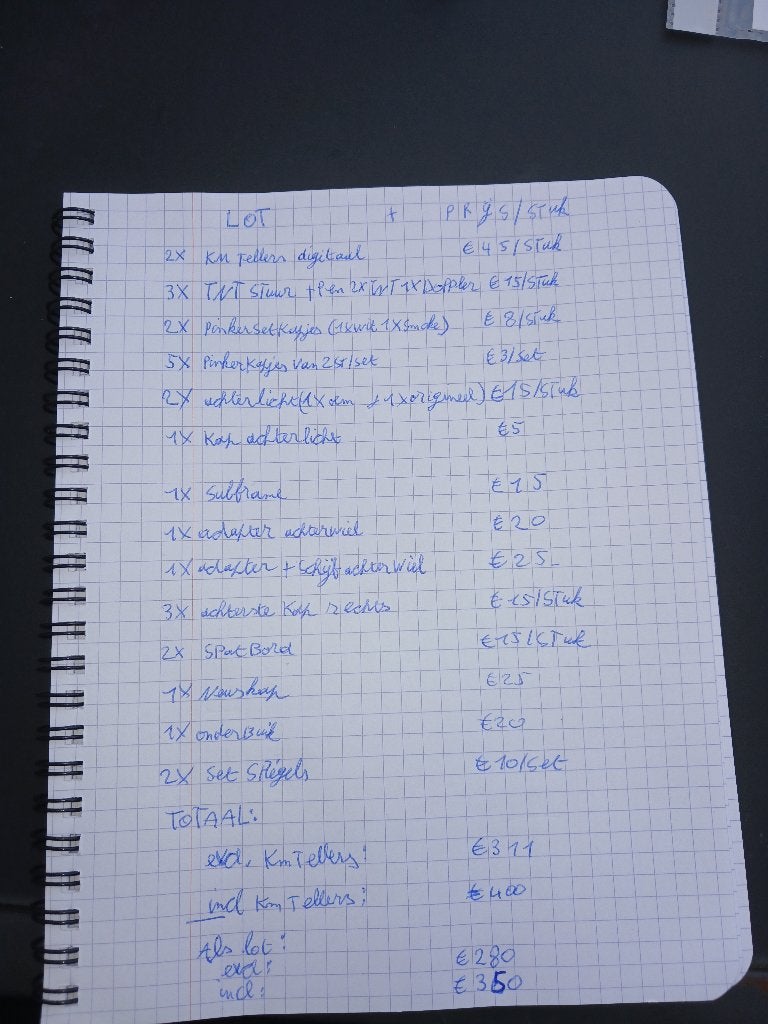 LOT + PRYS/STUK
2X KM Tellers digitaal €45/STUK
3X TNT STUUR + Pen 2XTNT 1XDoppler €15/STUK
2X PinkerSetKapjes (1xwit 1XSmoke) €8/STUK
5X PinkerKapjes van 2St/set €3/Set
2X achterlicht (1X oem + 1Xorigineel) €15/STUK
1X Kap achterlicht €5
1X Subframe €15
1X adapter achterwiel €20
1X adapter + Schijf achterWiel €25
3X achterste Kap rechts €15/STUK
2X SPatBord €15/STUK
1X Neuskap €25
1X onderBuik €20
2X Set SPiegels €10/Set
TOTAAL:
excl. KmTellers: €311
incl KmTellers: €400
Als lot:
excl: €280
incl: €350